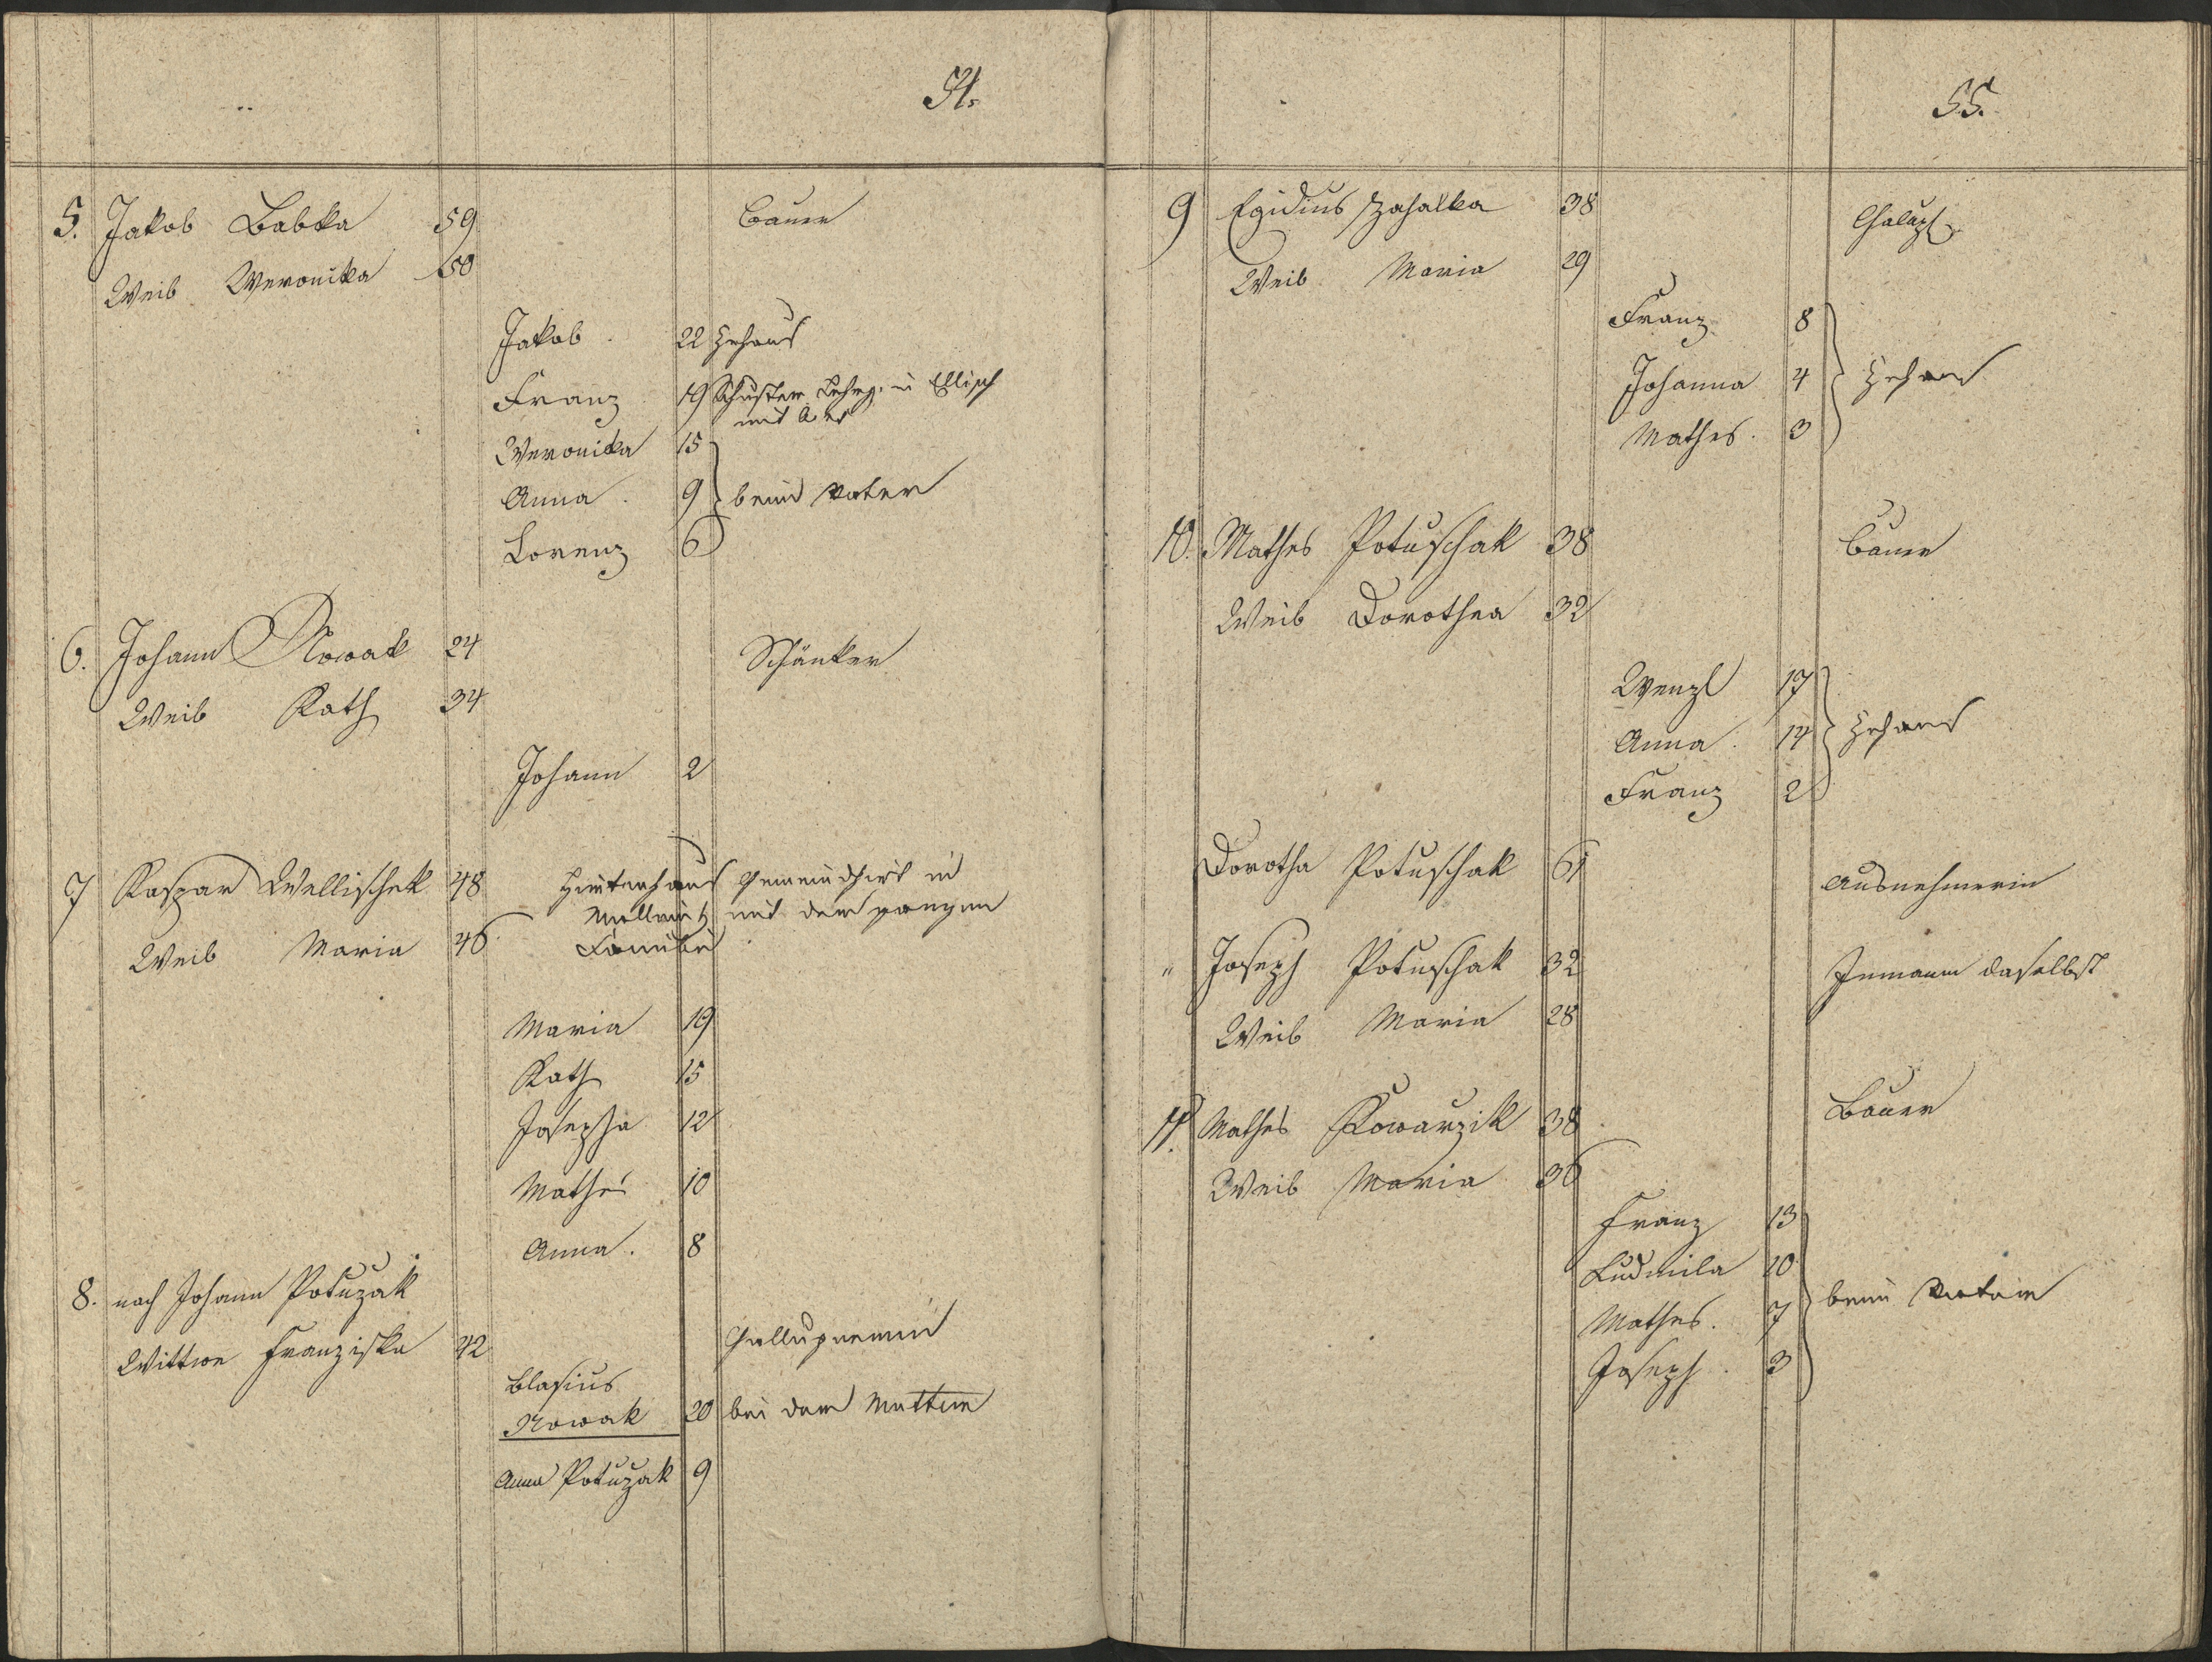 54.
5. Jakob Babka 59 Bauer
Weib Weronika 50
Jakob 22 zehaus
Franz 19 Schuster Lehrg. in Ellisch
mit
Weronika 15
Anna 9 beim Vater
Lorenz 6
6. Johann Nowak 24 Schänker
Weib Kath 34
Johann 2
7 Kaspar Wellischek 48 Hirtenhaus Gemeindhirt in
mit der ganzen
Weib Maria 46 Famili
Maria 19
Kath 15
Josepha 12
Mathes 10
Anna. 8
8. nach Johann Potužak
Wittwe Franziska 42 Challupnerin
Blasius
Nowak 20 bei der Mutter
Anna Potužak 9
55.
9 Egidius Zahalka 38 Chalupl.
Weib Maria 29
Franz 8
Johanna 4 zehaus
Mathes. 3
10. Mathes Potuschak 38 Bauer
Weib Dorothea 32
Wenzl 17
Anna. 14 zehaus
Franz 2
Dorotha Potuschak 61 Ausnehmerin
" Joseph Potuschak 32 Inmann daselbst
Weib Maria 28
11. Mathes Kowarzik 38 Bauer
Weib Maria 36
Franz 13
Ludmila 10
Mathes. 7 beim Vater
Joseph. 3